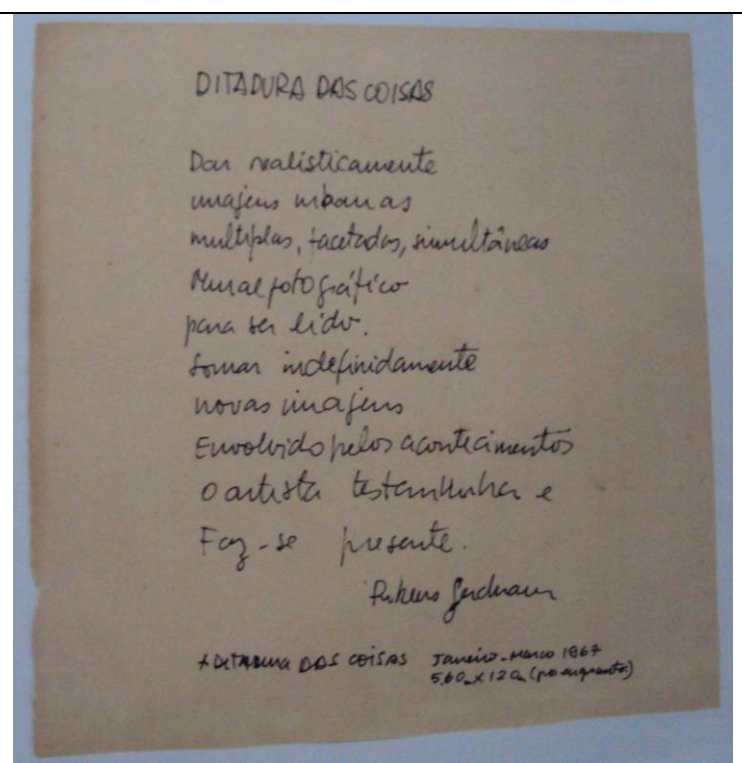 DITADURA DAS COISAS
Dar realisticamente
imagens urbanas
multiplas, facetadas, simultâneas
Mural fotográfico
para ser lido.
Somar indefinidamente
novas imagens
Envolvido pelos acontecimentos
O artista testemunha e
Faz-se presente.
Rubens Gerchman
A DITADURA DAS COISAS Janeiro-Março 1967
5,60 x 12 (por enquanto)